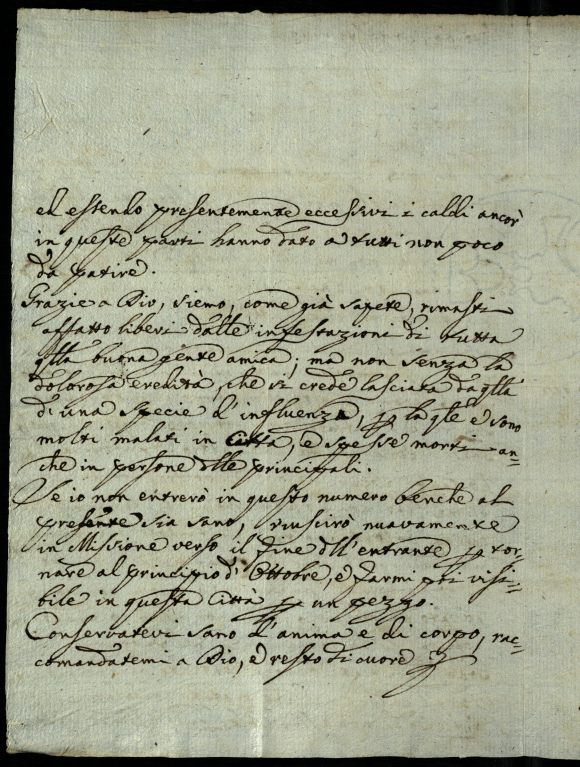 ed essendo presentemente eccessivi i caldi ancor
in queste parti hanno dato a tutti non poco
da patire.
Grazie a Dio, siemo, come già sapete, rimasti
affatto liberi dalle infestazioni di tutta
qlla buona gente amica; ma non senza la
dolorosa eredità, che si crede lasciata da qlla
di una specie d'influenza, p la qle e sono
molti malati in Città, e spesse morti an=
che in persone dlle principali.
Se io non entrerò in questo numero benche al
presente sia sano, riuscirò nuavamente
in Missione verso il fine dll'entrante p tor=
nare al principio di Ottobre, e farmi poi visi=
bile in questa Città p un pezzo.
Conservatevi sano d'anima e di corpo, rac=
comandatemi a Dio, e resto di cuore